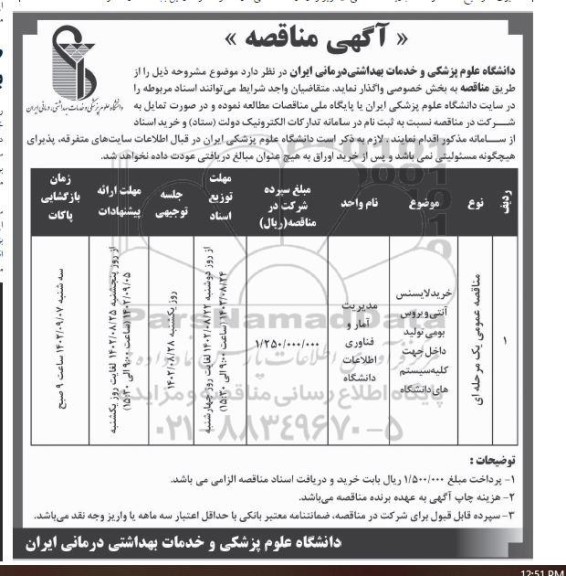 « آگهی مناقصه »
دانشگاه علوم پزشکی و خدمات بهداشتی درمانی ایران
دانشگاه علوم پزشکی و خدمات بهداشتی‌درمانی ایران در نظر دارد موضوع مشروحه ذیل را از
طریق مناقصه به بخش خصوصی واگذار نماید. متقاضیان واجد شرایط می‌توانند اسناد مربوطه را
در سایت دانشگاه علوم پزشکی ایران یا پایگاه ملی مناقصات مطالعه نموده و در صورت تمایل به
شرکت در مناقصه نسبت به ثبت نام در سامانه تدارکات الکترونیک دولت (ستاد) و خرید اسناد
از سامانه مذکور اقدام نمایند. لازم به ذکر است دانشگاه علوم پزشکی ایران در قبال اطلاعات سایت‌های متفرقه، پذیرای
هیچگونه مسئولیتی نمی باشد و پس از خرید اوراق به هیچ عنوان مبالغ دریافتی عودت داده نخواهد شد.
ردیف
نوع
موضوع
نام واحد
مبلغ سپرده
شرکت در
مناقصه(ریال)
مهلت
توزیع
اسناد
جلسه
توجیهی
مهلت ارائه
پیشنهادات
زمان
بازگشایی
پاکات
مناقصه عمومی یک مرحله ای
خرید لایسنس
آنتی ویروس
بومی تولید
داخل جهت
کلیه سیستم
های دانشگاه
مدیریت
آمار و
فناوری
اطلاعات
دانشگاه
۱/۲۵۰/۰۰۰/۰۰۰
از روز دوشنبه ۱۴۰۲/۰۸/۲۲ لغایت روز چهارشنبه
۱۴۰۲/۰۸/۲۴ (ساعت ۹:۰۰ الی ۱۵:۳۰)
روز یکشنبه
۱۴۰۲/۰۸/۲۸
از روز پنجشنبه ۱۴۰۲/۰۸/۲۵ لغایت روز یکشنبه
۱۴۰۲/۰۹/۰۵ (ساعت ۹:۰۰ الی ۱۵:۳۰)
سه شنبه ۱۴۰۲/۰۹/۰۷ ساعت ۹ صبح
ParsNamadData
پایگاه اطلاع رسانی مناقصه و مزایده
۰۲۱-۸۸۳۴۹۶۷۰-۵
توضیحات :
۱- پرداخت مبلغ ۱/۵۰۰/۰۰۰ ریال بابت خرید و دریافت اسناد مناقصه الزامی می باشد.
۲- هزینه چاپ آگهی به عهده برنده مناقصه می‌باشد.
۳- سپرده قابل قبول برای شرکت در مناقصه، ضمانتنامه معتبر بانکی با حداقل اعتبار سه ماهه یا واریز وجه نقد می‌باشد.
دانشگاه علوم پزشکی و خدمات بهداشتی درمانی ایران
12:51 PM